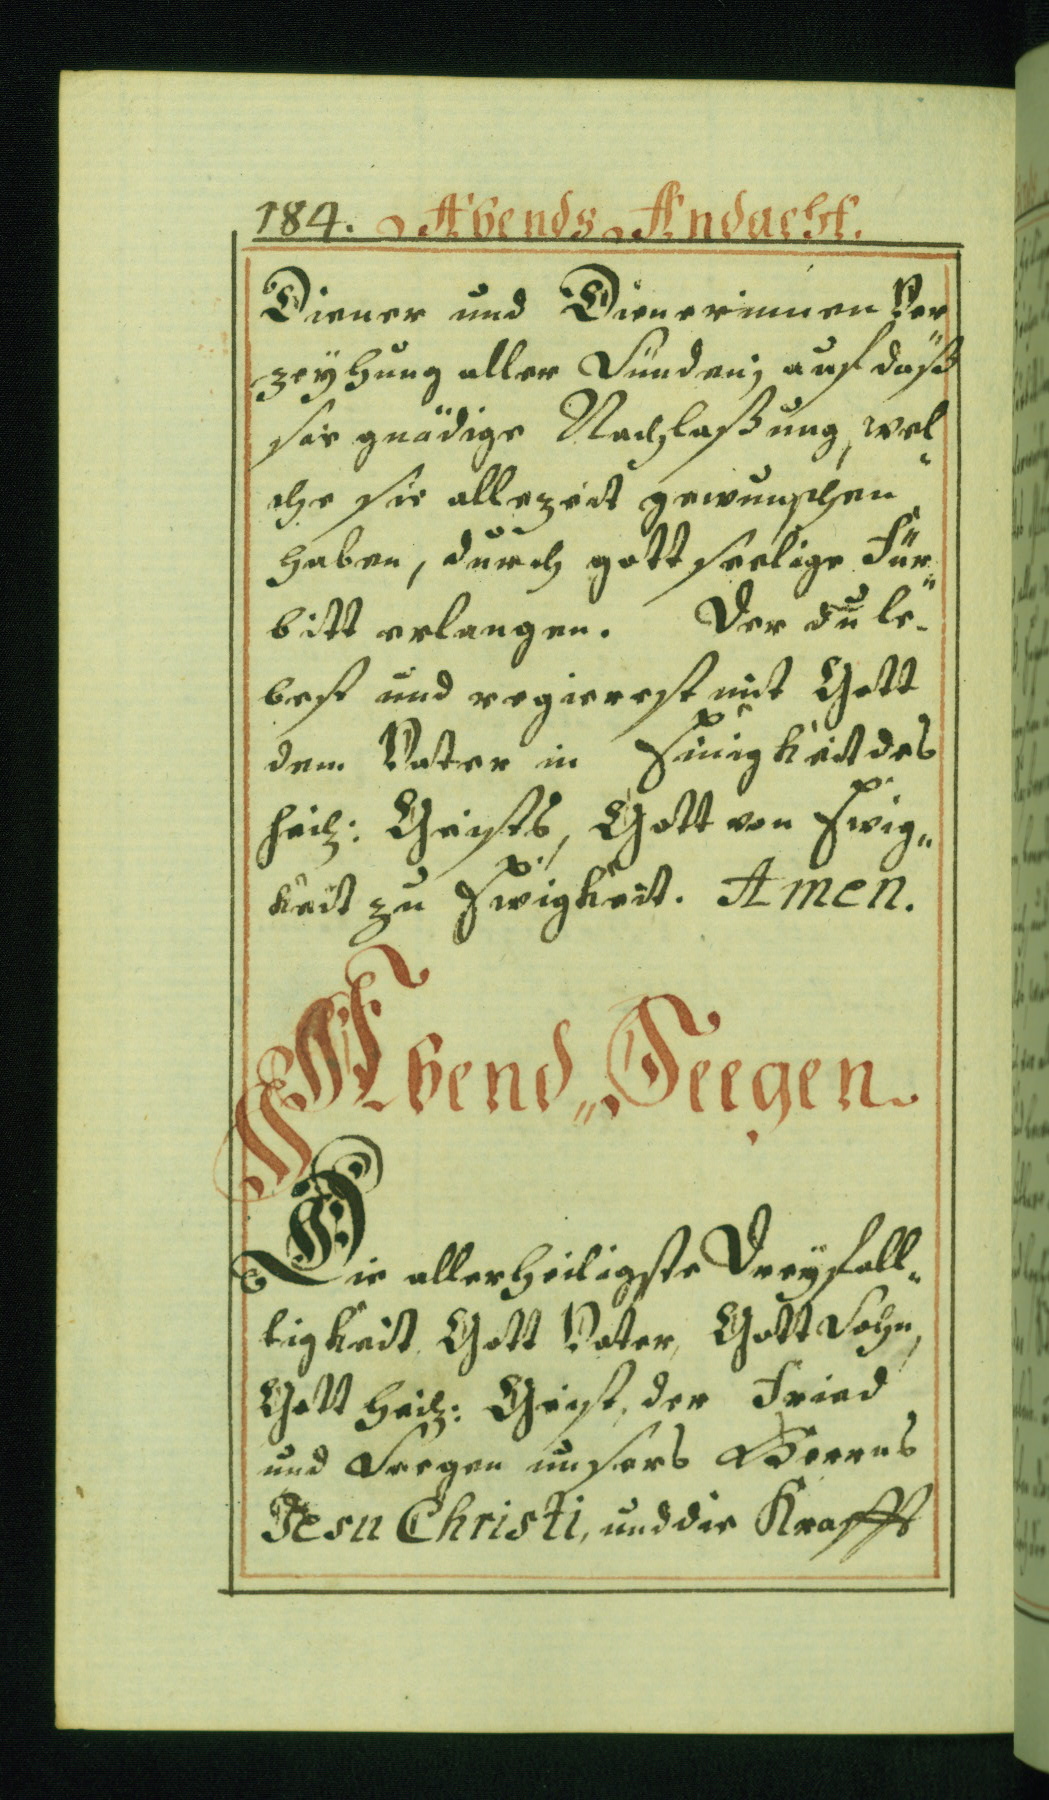 184. Abends Andacht.
Diener und Dienerinnen Ver
zeyhung aller Sünden; auf daß
sie gnädige Nachlaßung, wel„
che sie allezeit gewunschen
haben, durch gottseelige Für„
bitt erlangen. Der du le„
best und regierest mit Gott
dem Vater in Einigkeit des
heil: Geists, Gott von Ewig„
keit zu Ewigkeit. Amen.
Abend„Seegen.
Die allerheiligste Dreyfall„
tigkeit Gott Vater, Gott Sohn,
Gott heil: Geist, der Fried
und Seegen unsers Herrns
Jesu Christi, und die Krafft